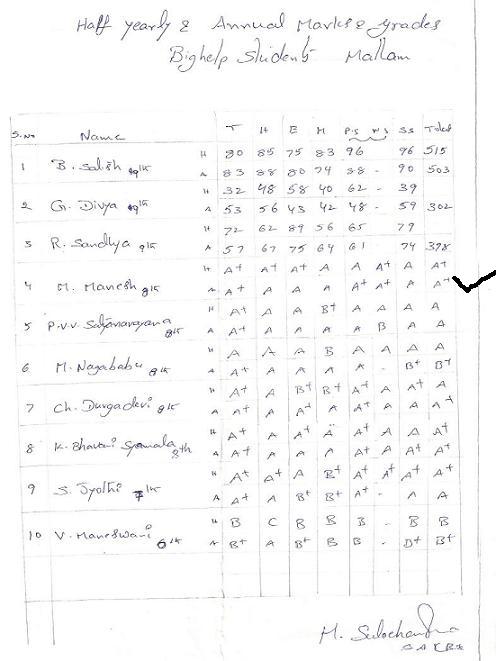 Half yearly & Annual Marks & grades
Bighelp Students Mallam
S.No Name T H E M P.S N.S SS Total
1 B. Satish 9th H 80 85 75 83 96 96 515
A 83 88 80 74 88 - 90 503
H 32 48 58 40 62 - 39
2 G. Divya 9th A 53 56 43 42 48 - 59 302
H 72 62 89 56 65 79
3 R. Sandhya 9th A 57 67 75 64 61 74 398
H A+ A+ A+ A A A+ A A+
4 M. Manesh 8th A A+ A A A A+ A+ A A+
H A+ A A B+ A A A A
5 P.V.V. Satyanarayana 8th A A+ A A A A B A A
H A A A B A A A A
6 M. Nagababu 8th A A+ A A A A - B+ B+
H A+ A B+ B+ A+ A A+ A
7 Ch. Durgadevi 8th A A+ A A+ A A A+ A A+
H A+ A A+ A A+ A A A+
8 K. Bhavani Syamala 8th A A+ A A A A+ A+ A+ A+
H A+ A+ A B+ A+ A A+ A+
9 S. Jyothi 7th A A+ A B+ B+ A+ - A A
H B C B B B - B B
10 V. Maneswari 6th A B+ A B+ B B - B+ B+
M. Sulochandra